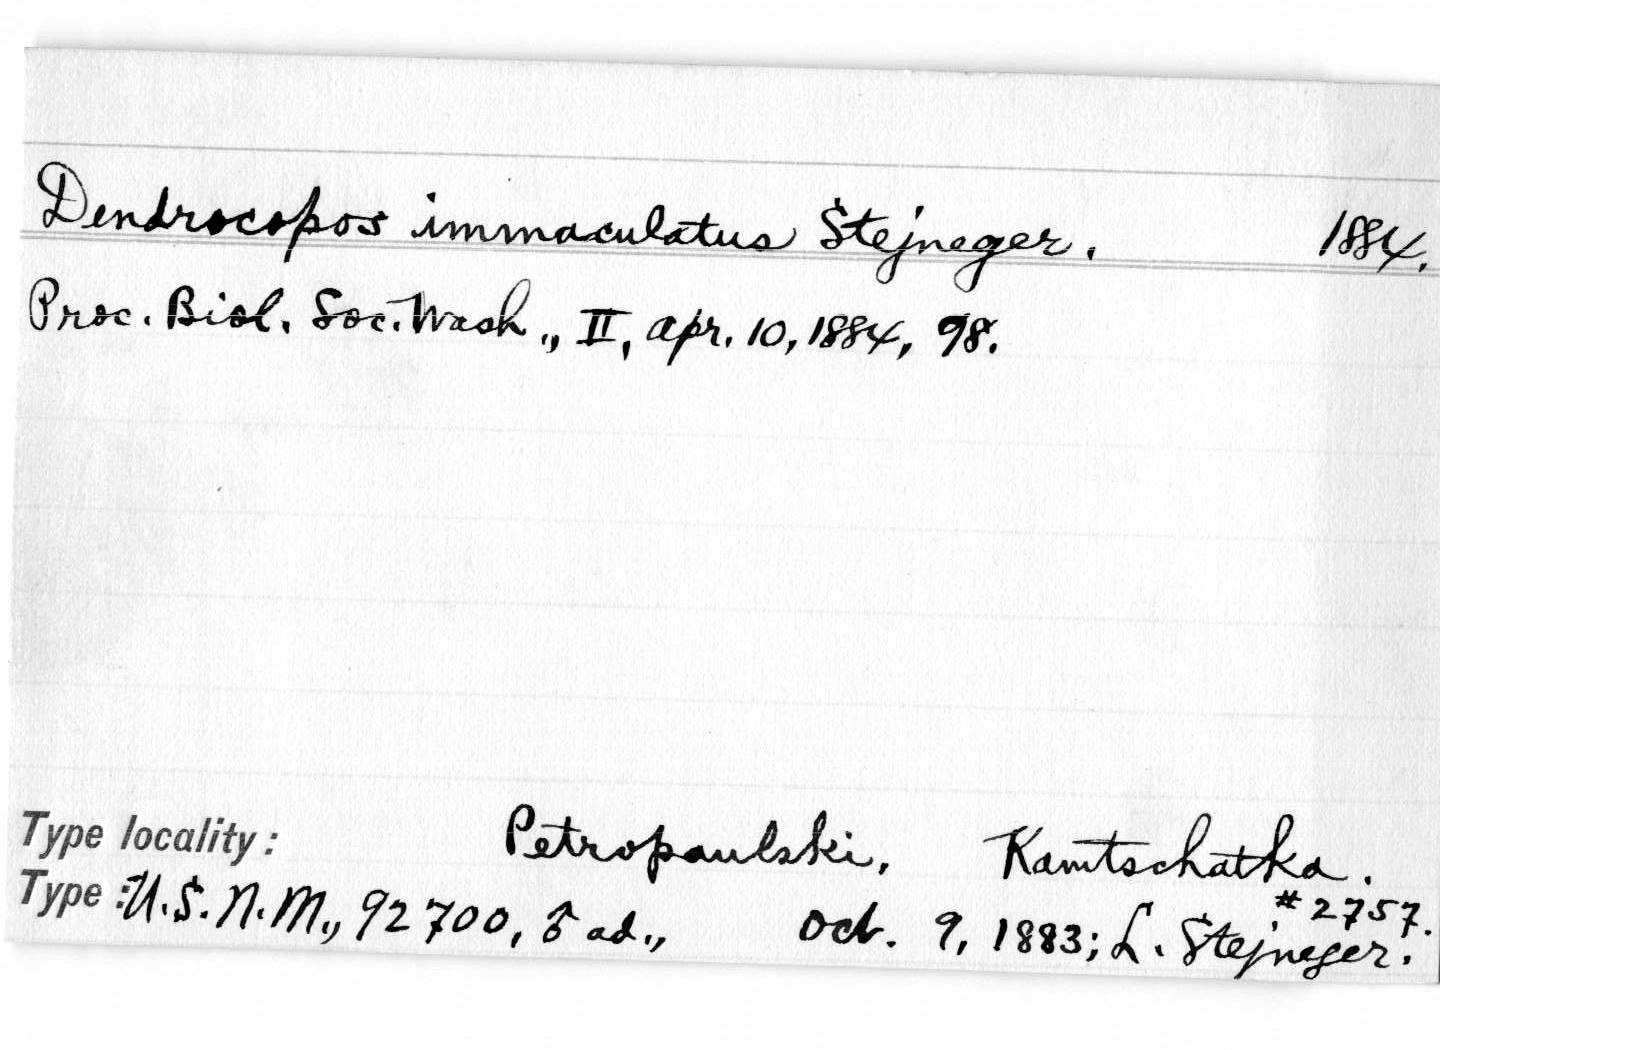 Dendrocopos immaculatus Stejneger. 1884.
Proc. Biol. Soc. Wash., II, Apr. 10, 1884, 98.
Type locality: Petropaulski, Kamtschatka.
Type: U.S.N.M., 92700, ♂ ad., Oct. 9, 1883; L. Stejneger.
#2757.